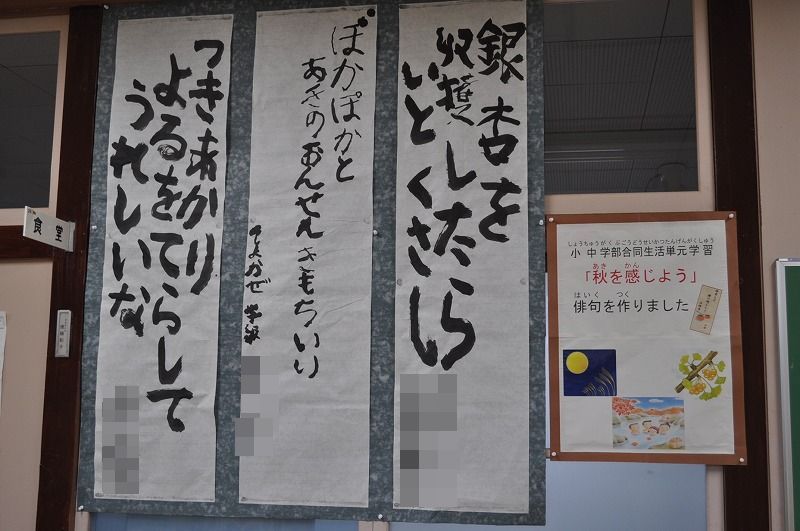 銀杏を
収穫したら
いとくさい
ぽかぽかと
あきのおんせんきもちいり
そよかぜ学級
つきあかり
よるをてらして
うれしいな
食堂
しょうちゅうがくぶごうどうせいかつたんげんがくしゅう
小中学部合同生活単元学習
あき かん
「秋を感じよう」
はいく つく
俳句を作りました